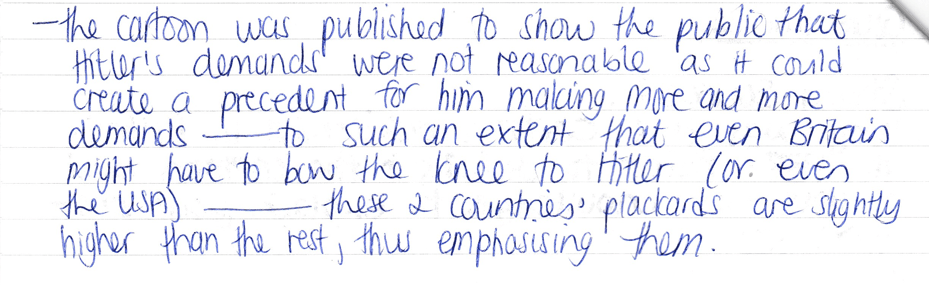 - the cartoon was published to show the public that
Hitler's demands were not reasonable as it could
create a precedent for him making more and more
demands —— to such an extent that even Britain
might have to bow the knee to Hitler (or even
the USA) —— these 2 countries' plackards are slightly
higher than the rest, thus emphasising them.